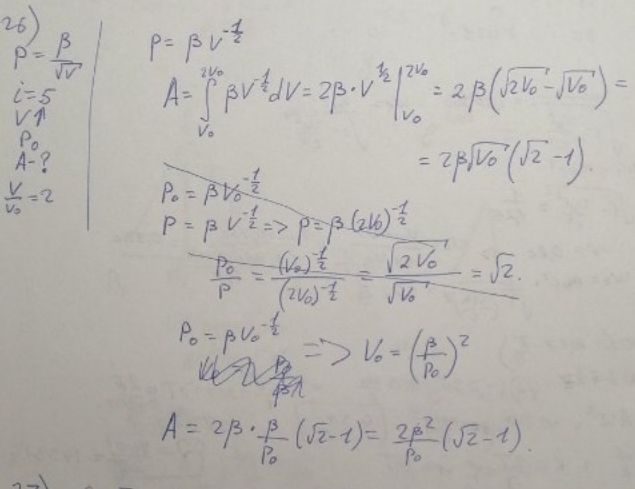 26)
P = β/√V
i=5
V↑
P₀
A-?
V/V₀ = 2
P = βV^(-1/2)
A = ∫_{V₀}^{2V₀} βV^(-1/2) dV = 2β·V^(1/2) |_{V₀}^{2V₀} = 2β(√(2V₀) - √V₀) =
= 2β√V₀ (√2 - 1).
P₀ = βV₀^(-1/2)
P = βV^(-1/2) => P = β(2V₀)^(-1/2)
P₀/P = (V₀)^(-1/2)/(2V₀)^(-1/2) = √(2V₀)/√V₀ = √2.
P₀ = βV₀^(-1/2) => V₀ = (β/P₀)²
A = 2β · β/P₀ (√2-1) = 2β²/P₀ (√2-1).
27)